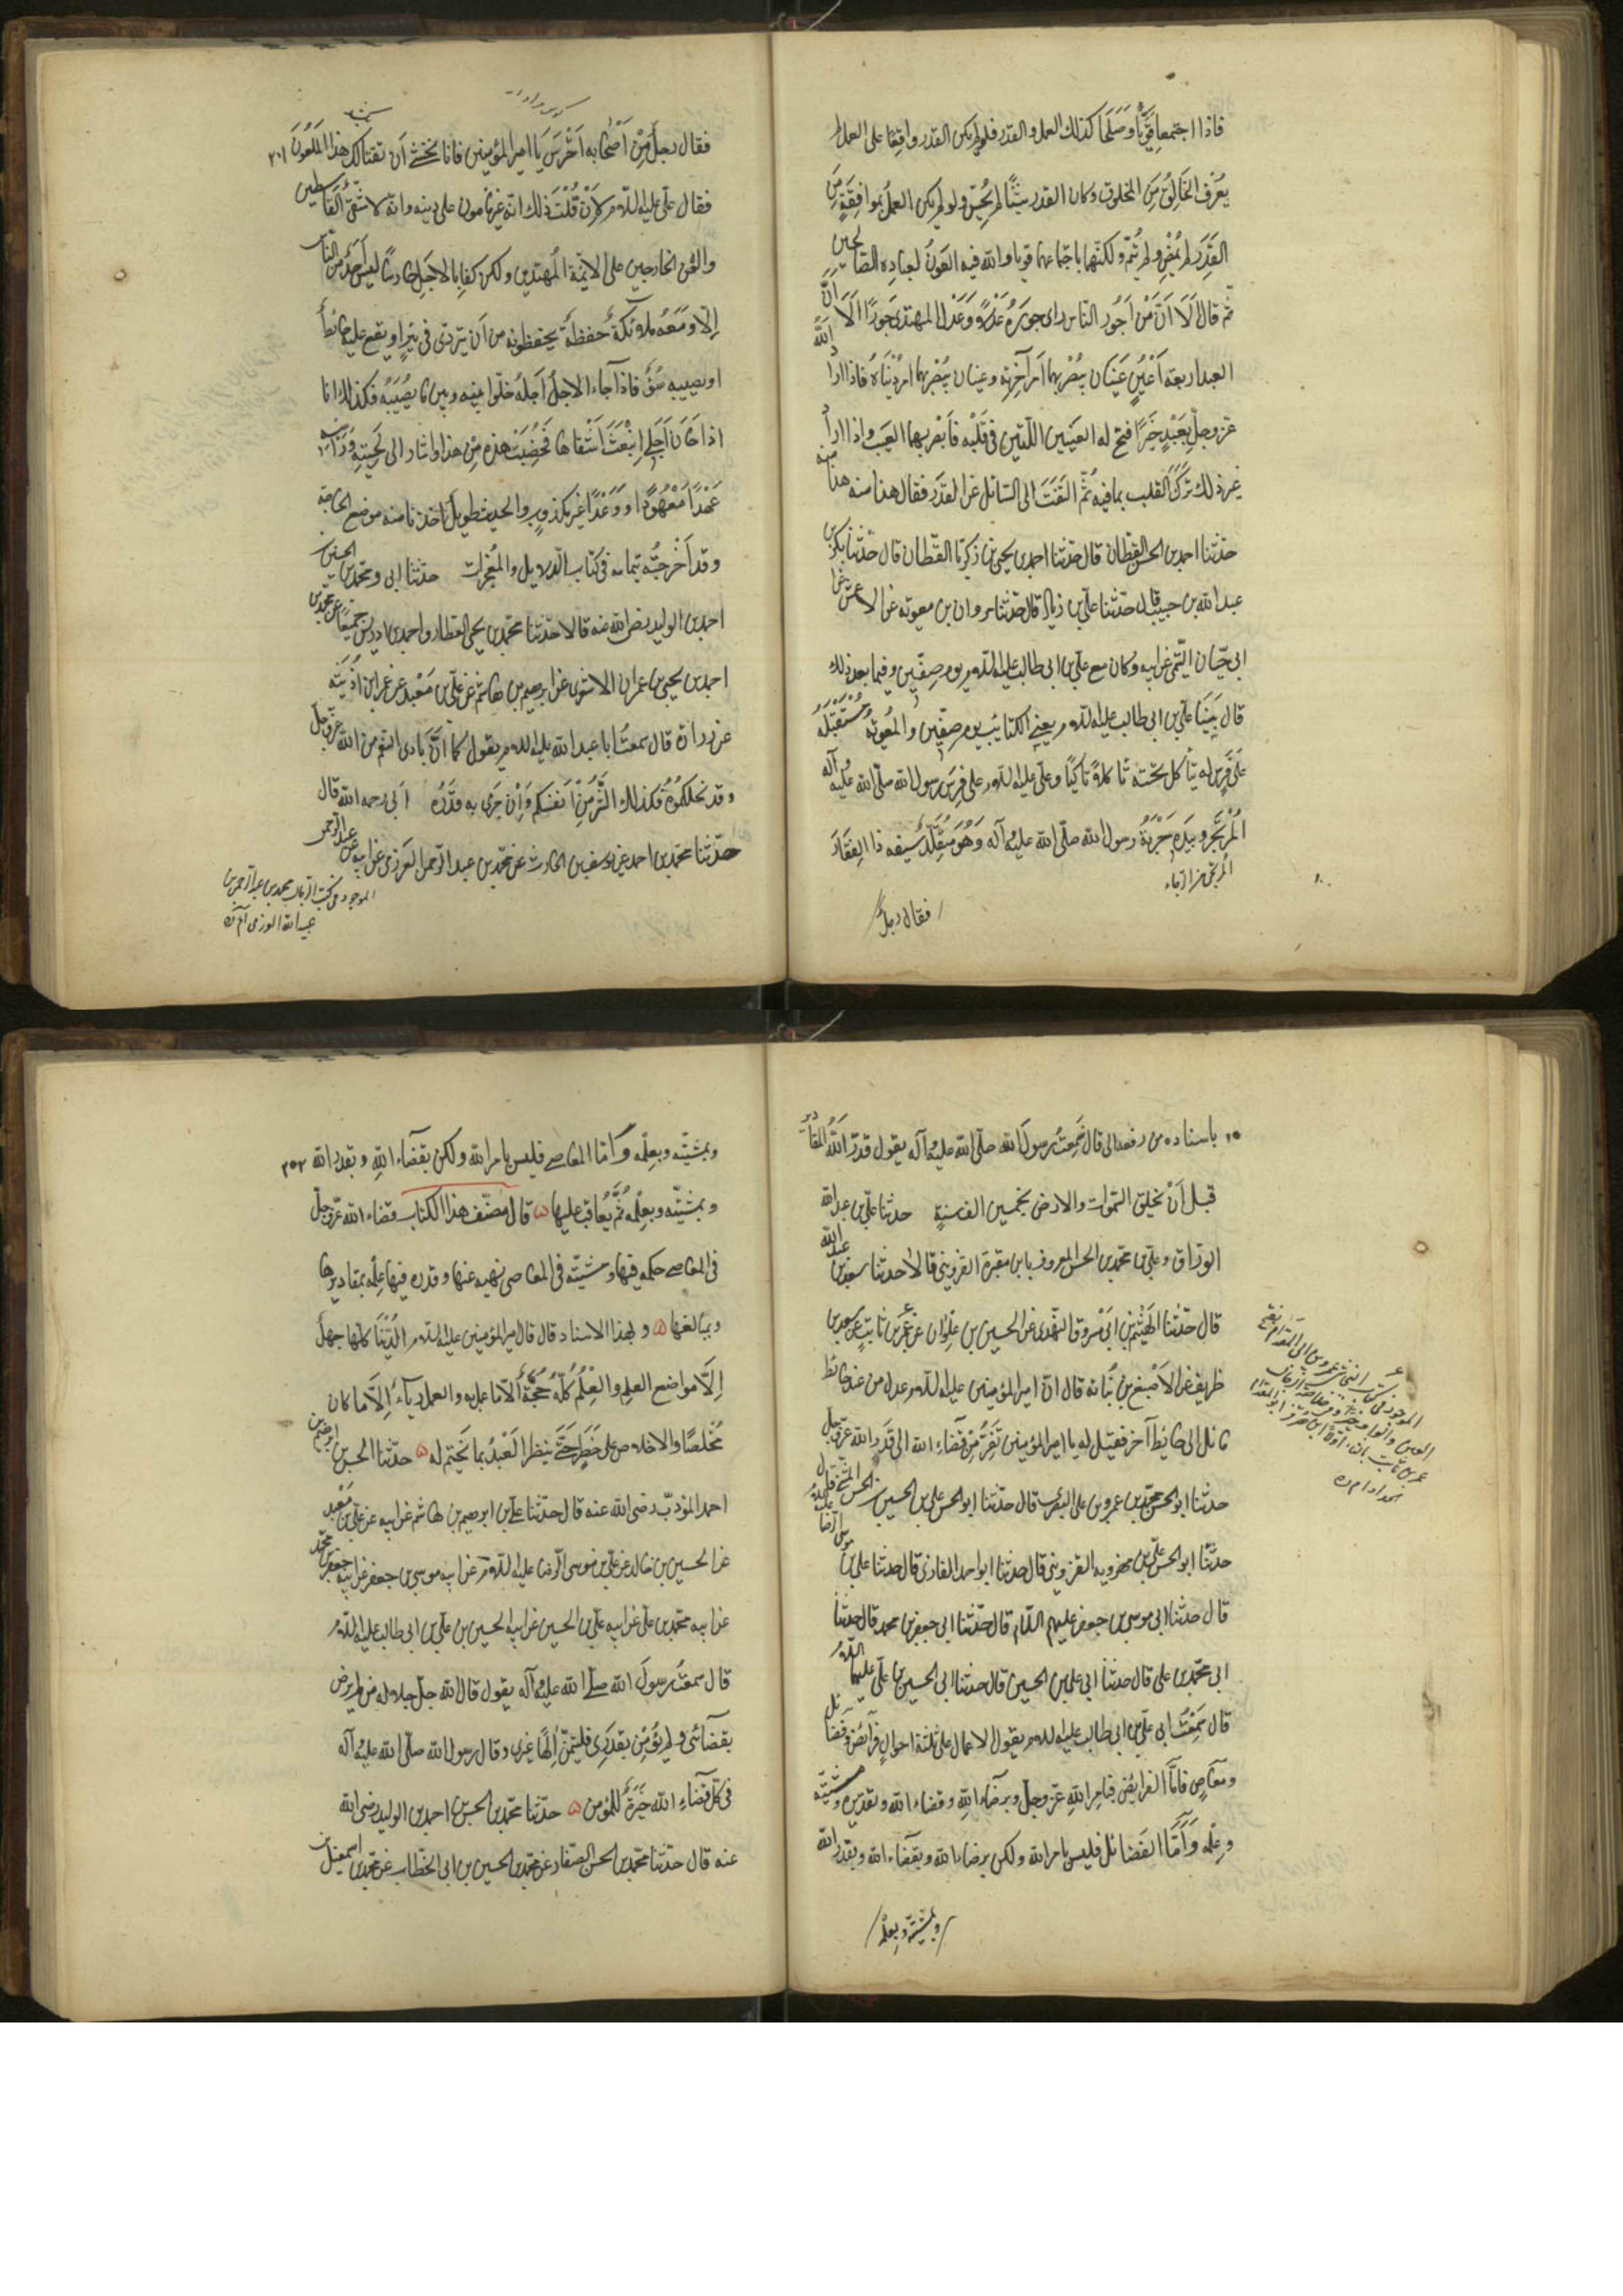 فاذا اجتمعا قويا وصلحا كذلك العمل والقدر فلو لم يكن القدر واقعًا على العمل لم
يعرف الخالق من المخلوق وكان القدر شيئًا لم يحس ولو لم يكن العمل بموافقة من
القدر لم يمض ولم يتم ولكنهما باجتماعهما قويا ولله فيه العون لعباده الصالحين
ثم قال ألا انّ من أجور الناس راى جوره عدلا وعدل المهتدى جورًا ألا انّ
العبد اربعة أعين عينان يبصر بهما أمر آخرته وعينان يبصر بهما امر دنياه فاذا اراد الله
عز وجل بعبد خيرا فتح له العينين اللتين في قلبه فأبصر بهما العيب واذا اراد
غير ذلك ترك القلب بما فيه ثم التفت الى السائل عن القدر فقال هذا منه هذا منه
حدثنا احمد بن الحسن القطان قال حدثنا احمد بن يحيى بن زكريا القطان قال حدثنا بكر بن
عبد الله بن حبيب قال حدثنا علي بن زياد قال حدثنا مروان بن معوية عن الاعمش عن
ابى حيان التيمى عن ابيه وكان مع علي بن ابى طالب عليه السلام يوم صفين وفيما بعد ذلك
قال بينا علي بن ابى طالب عليه السلام يعبى الكتائب يوم صفين والمعوية مستقبله
على فرس له يتأكل تحته تأكلا تأكيا وعلى عليه السلام على فرس رسول الله صلى الله عليه وآله
المرتجز وبيده حربة رسول الله صلى الله عليه وآله وهو متقلد سيفه ذا الفقار
فقال رجل
فقال رجل من أصحابه أحترس يا امير المؤمنين فانا نخشى أن يغتالك هذا الملعون ٢٠١
فقال على عليه السلام لإن قلت ذلك انه غير مأمون على دينه وانه لاشقى القاسطين
والعن الخارجين على الائمة المهتدين ولكن كفى بالاجل حارسًا ليس أحد من الناس
إلا ومعه ملائكة حفظة يحفظونه من أن يتردى في بئر او يقع عليه حائط
او يصيبه سوء فاذا جاء الاجل أجله خلوا بينه وبين ما يصيبه فكذلك انا
اذا حان أجلى انبعث أشقاها فخضبت هذه من هذا واشار الى لحيته ورأسه
عهدًا معهودًا ووعدًا غير مكذوب والحديث طويل أخذنا منه موضع الحاجة
وقد أخرجته بتمامه في كتاب الدلايل والمعجزات حدثنا ابى ومحمد بن الحسن بن
احمد بن الوليد رضى الله عنه قالا حدثنا محمد بن يحيى العطار واحمد بن ادريس جميعًا عن محمد بن
احمد بن يحيى بن عمران الاشعرى عن ابرهيم بن هاشم عن علي بن معبد عن عمر بن اذينة
عن زرارة قال سمعت ابا عبد الله عليه السلام يقول كما أنّ بادى النعم من الله عز وجل
وقد نحلكموه فكذلك الشر من أنفسكم وإن جرى به قدره أبى رحمه الله قال
حدثنا محمد بن احمد عن يوسف بن الحارث عن محمد بن عبد الرحمن العرزمى عن ابيه عبد الرحمن
باسناده من رفعه الى قال سمعت رسول الله صلى الله عليه وآله يقول قدر الله المقادير
قبل أن يخلق السموات والارض بخمسين الف سنة حدثنا علي بن عبد الله
الوراق وعلي بن محمد بن الحسن المعروف بابن مقبرة القزوينى قالا حدثنا سعد بن عبد الله
قال حدثنا الهيثم بن ابى مسروق النهدى عن الحسين بن علوان عن عمر بن ثابت عن سعد بن
ظريف عن الأصبغ بن نباته قال ان امير المؤمنين عليه السلام عدل من عند حائط
مائل الى حائط آخر فقيل له يا امير المؤمنين تفر من قضاء الله الى قدر الله عز وجل
حدثنا ابو الحسن محمد بن عمرو بن على البصرى قال حدثنا ابو الحسن على بن الحسن
حدثنا ابو الحسن على بن مهرويه القزوينى قال حدثنا ابو احمد الغازى قال حدثنا على بن موسى الرضا
قال حدثنا ابى موسى بن جعفر عليهم السلام قال حدثنا ابى جعفر بن محمد قال حدثنا
ابى محمد بن على قال حدثنا ابى على بن الحسين قال حدثنا ابى الحسين بن على عليهما السلام
قال سمعت ابى على بن ابى طالب عليه السلام يقول الاعمال على ثلثة احوال فرائض وفضائل
ومعاص فأما الفرائض فبامر الله عز وجل وبرضاء الله وقضاء الله وتقديره ومشيته
وعلمه وأما الفضائل فليس بامر الله ولكن برضاء الله وبقضاء الله وبقدر الله
وبمشيته وبعلمه
وبمشيته وبعلمه وأما المعاصى فليس بامر الله ولكن بقضاء الله وبقدر الله ٢٠٢
وبمشيته وبعلمه ثم يعاقب عليها قال مصنف هذا الكتاب قضاء الله عز وجل
في المعاصى حكمه فيها ومشيته في المعاصى نهيه عنها وقدره فيها علمه بمقاديرها
ومبالغها وبهذا الاسناد قال قال امير المؤمنين عليه السلام الدنيا كلها جهل
إلا مواضع العلم والعلم كله حجة ألا ما عمل به والعمل رياء إلا ما كان
مخلصًا والاخلاص على خطر حتى ينظر العبد بما يختم له حدثنا الحسين بن ابرهيم بن
احمد المؤدب رضى الله عنه قال حدثنا على بن ابرهيم بن هاشم عن ابيه عن على بن معبد
عن الحسين بن خالد عن على بن موسى الرضا عليه السلام عن ابيه موسى بن جعفر عن ابيه جعفر بن محمد
عن ابيه محمد بن على عن ابيه على بن الحسين عن ابيه الحسين بن على بن ابى طالب عليه السلام
قال سمعت رسول الله صلى الله عليه وآله يقول قال الله جل جلاله من لم يرض
بقضائى ولم يؤمن بقدرى فليلتمس إلهًا غيرى وقال رسول الله صلى الله عليه وآله
في كل قضاء الله خيرة للمؤمن حدثنا محمد بن الحسن بن احمد بن الوليد رضى الله
عنه قال حدثنا محمد بن الحسن الصفار عن محمد بن الحسين بن ابى الخطاب عن محمد بن اسمعيل بن